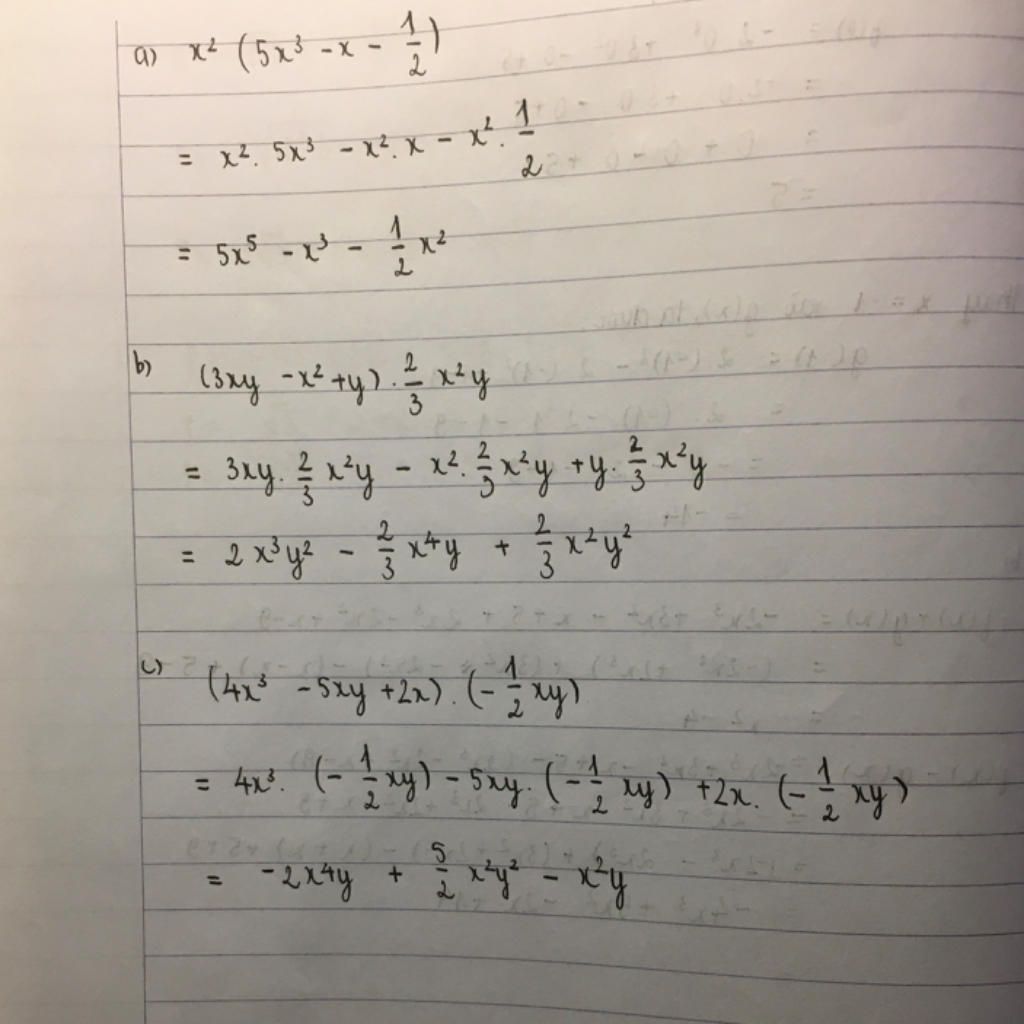 a) x² (5x³ - x - 1/2)
= x². 5x³ - x². x - x². 1/2
= 5x⁵ - x³ - 1/2 x²
b) (3xy - x² + y). 2/3 x²y
= 3xy. 2/3 x²y - x². 2/3 x²y + y. 2/3 x²y
= 2x³y² - 2/3 x⁴y + 2/3 x²y²
c) (4x³ - 5xy + 2x). (- 1/2 xy)
= 4x³. (- 1/2 xy) - 5xy. (- 1/2 xy) + 2x. (- 1/2 xy)
= -2x⁴y + 5/2 x²y² - x²y